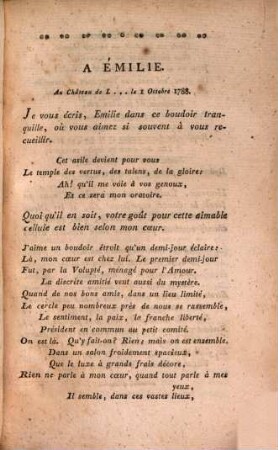 A ÉMILIE.
Au Château de L . . . le 2 Octobre 1788.
Je vous écris, Emilie dans ce boudoir tran-
quille, où vous aimez si souvent à vous re-
cueillir.
Cet asile devient pour vous
Le temple des vertus, des talens, de la gloire;
Ah! qu'il me voie à vos genoux,
Et ce sera mon oratoire.
Quoi qu'il en soit, votre goût pour cette aimable
cellule est bien selon mon cœur.
J'aime un boudoir étroit qu'un demi-jour éclaire:
Là, mon cœur est chez lui. Le premier demi-jour
Fut, par la Volupté, ménagé pour l'Amour.
La discrète amitié veut aussi du mystère.
Quand de nos bons amis, dans un lieu limité,
Le cercle peu nombreux près de nous se rassemble,
Le sentiment, la paix, la franche liberté,
Président en commun au petit comité.
On est là. Qu'y fait-on? Rien; mais on est ensemble.
Dans un salon froidement spacieux,
Que le luxe à grands frais décore,
Rien ne parle à mon cœur, quand tout parle à mes
yeux,
Il semble, dans ces vastes lieux,